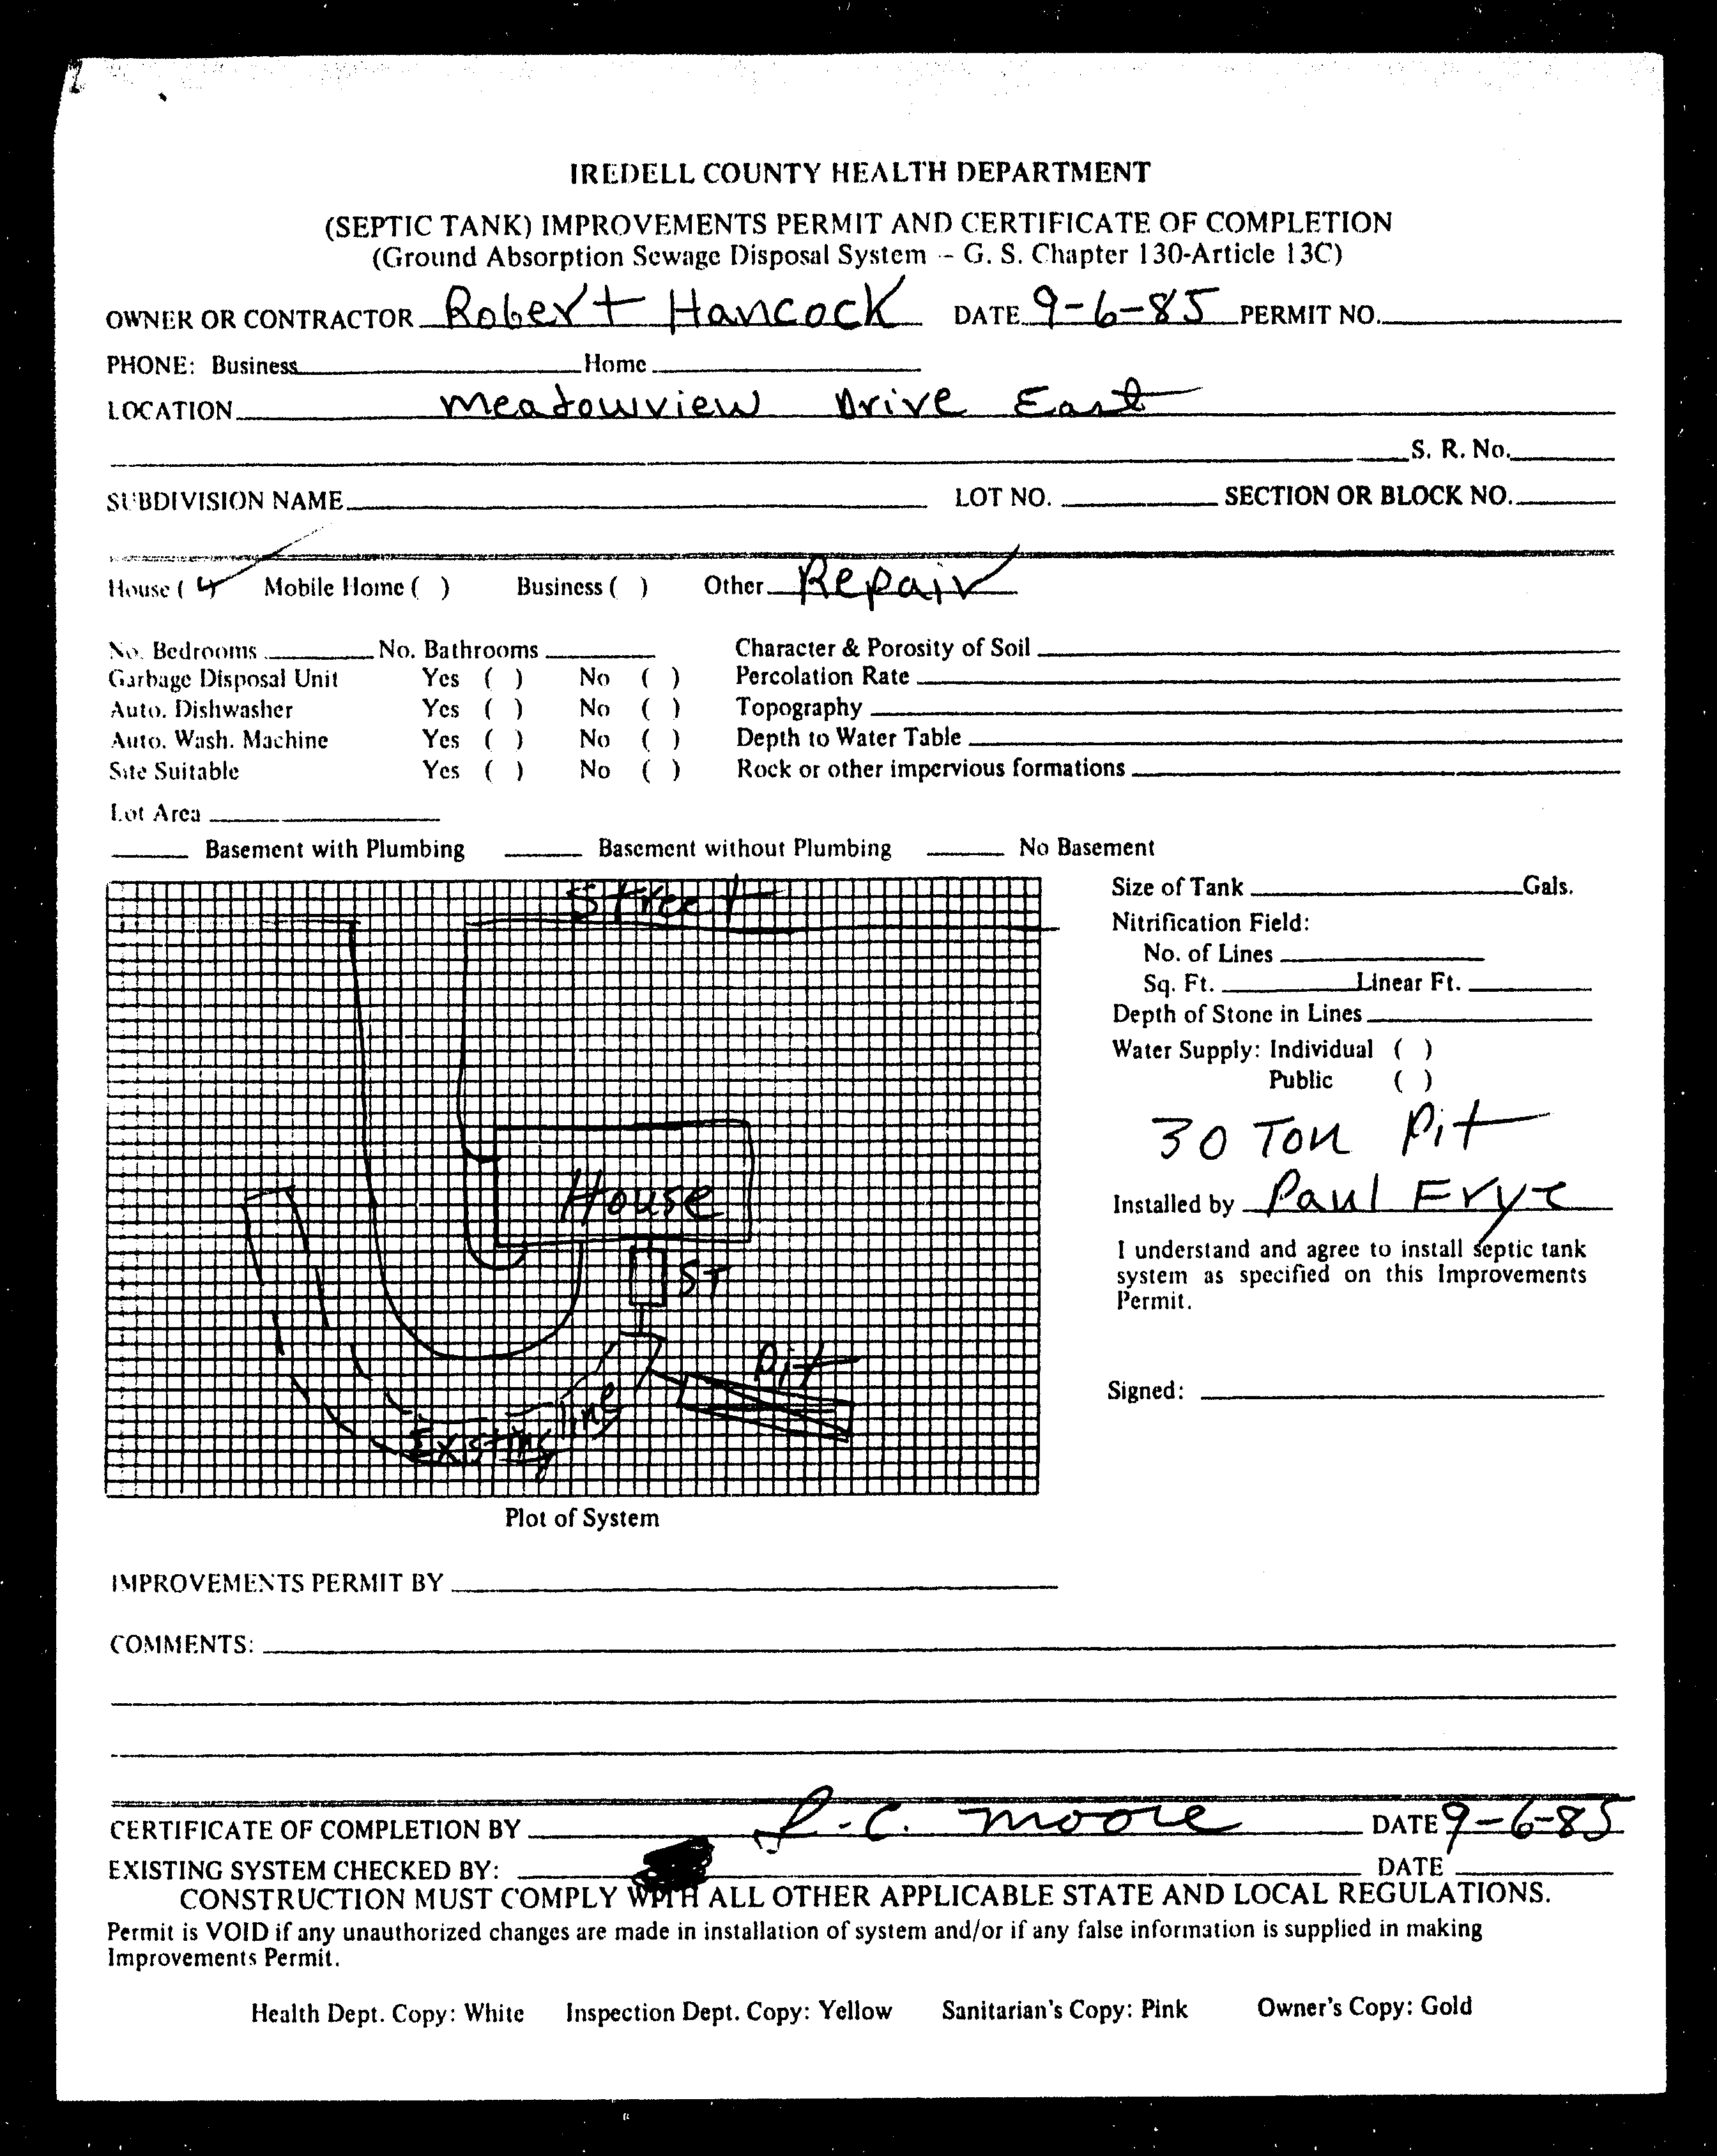 IREDELL COUNTY HEALTH DEPARTMENT
(SEPTIC TANK) IMPROVEMENTS PERMIT AND CERTIFICATE OF COMPLETION
(Ground Absorption Sewage Disposal System -- G. S. Chapter 130-Article 13C)
OWNER OR CONTRACTOR Robert Hancock DATE 9-6-85 PERMIT NO.
PHONE: Business Home
LOCATION Meadowview Drive East
S. R. No.
SUBDIVISION NAME LOT NO. SECTION OR BLOCK NO.
House ( ) Mobile Home ( ) Business ( ) Other Repair
No. Bedrooms No. Bathrooms Character & Porosity of Soil
Garbage Disposal Unit Yes ( ) No ( ) Percolation Rate
Auto. Dishwasher Yes ( ) No ( ) Topography
Auto. Wash. Machine Yes ( ) No ( ) Depth to Water Table
Site Suitable Yes ( ) No ( ) Rock or other impervious formations
Lot Area
Basement with Plumbing Basement without Plumbing No Basement
Street
House
ST
Pit
Existing line
Plot of System
Size of Tank Gals.
Nitrification Field:
No. of Lines
Sq. Ft. Linear Ft.
Depth of Stone in Lines
Water Supply: Individual ( )
Public ( )
30 Ton Pit
Installed by Paul Frye
I understand and agree to install septic tank
system as specified on this Improvements
Permit.
Signed:
IMPROVEMENTS PERMIT BY
COMMENTS:
CERTIFICATE OF COMPLETION BY R.C. Moore DATE 9-6-85
EXISTING SYSTEM CHECKED BY: DATE
CONSTRUCTION MUST COMPLY WITH ALL OTHER APPLICABLE STATE AND LOCAL REGULATIONS.
Permit is VOID if any unauthorized changes are made in installation of system and/or if any false information is supplied in making
Improvements Permit.
Health Dept. Copy: White Inspection Dept. Copy: Yellow Sanitarian's Copy: Pink Owner's Copy: Gold